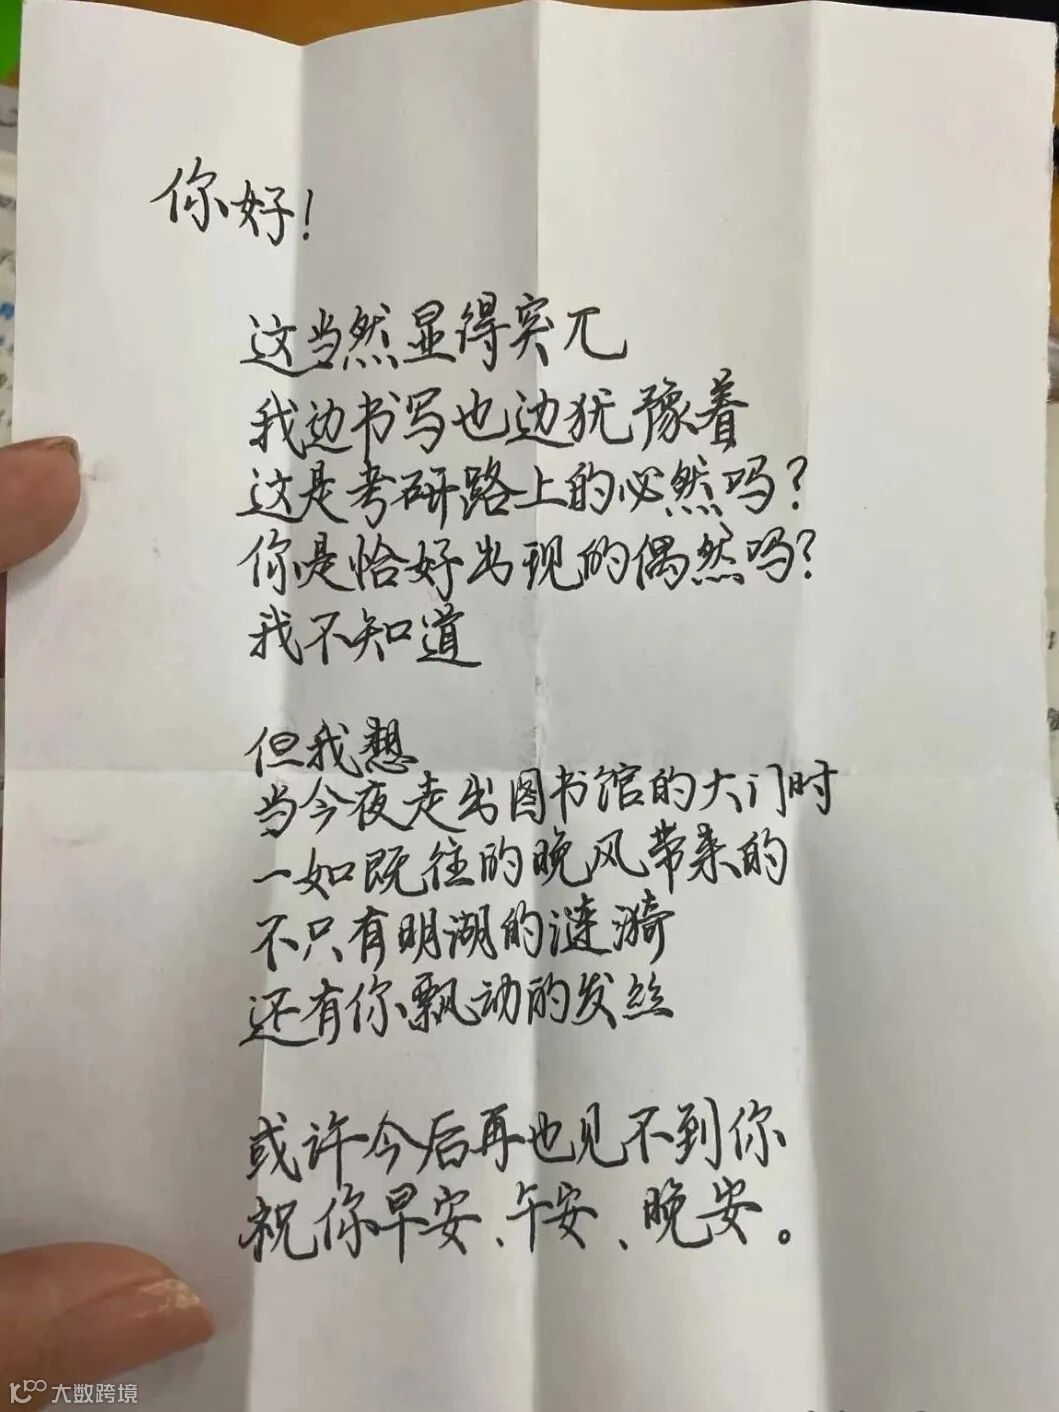 你好！
这当然显得突兀
我边书写也边犹豫着
这是考研路上的必然吗？
你是恰好出现的偶然吗？
我不知道
但我想
当今夜走出图书馆的大门时
一如既往的晚风带来的
不只有明湖的涟漪
还有你飘动的发丝
或许今后再也见不到你
祝你早安、午安、晚安。
大数跨境